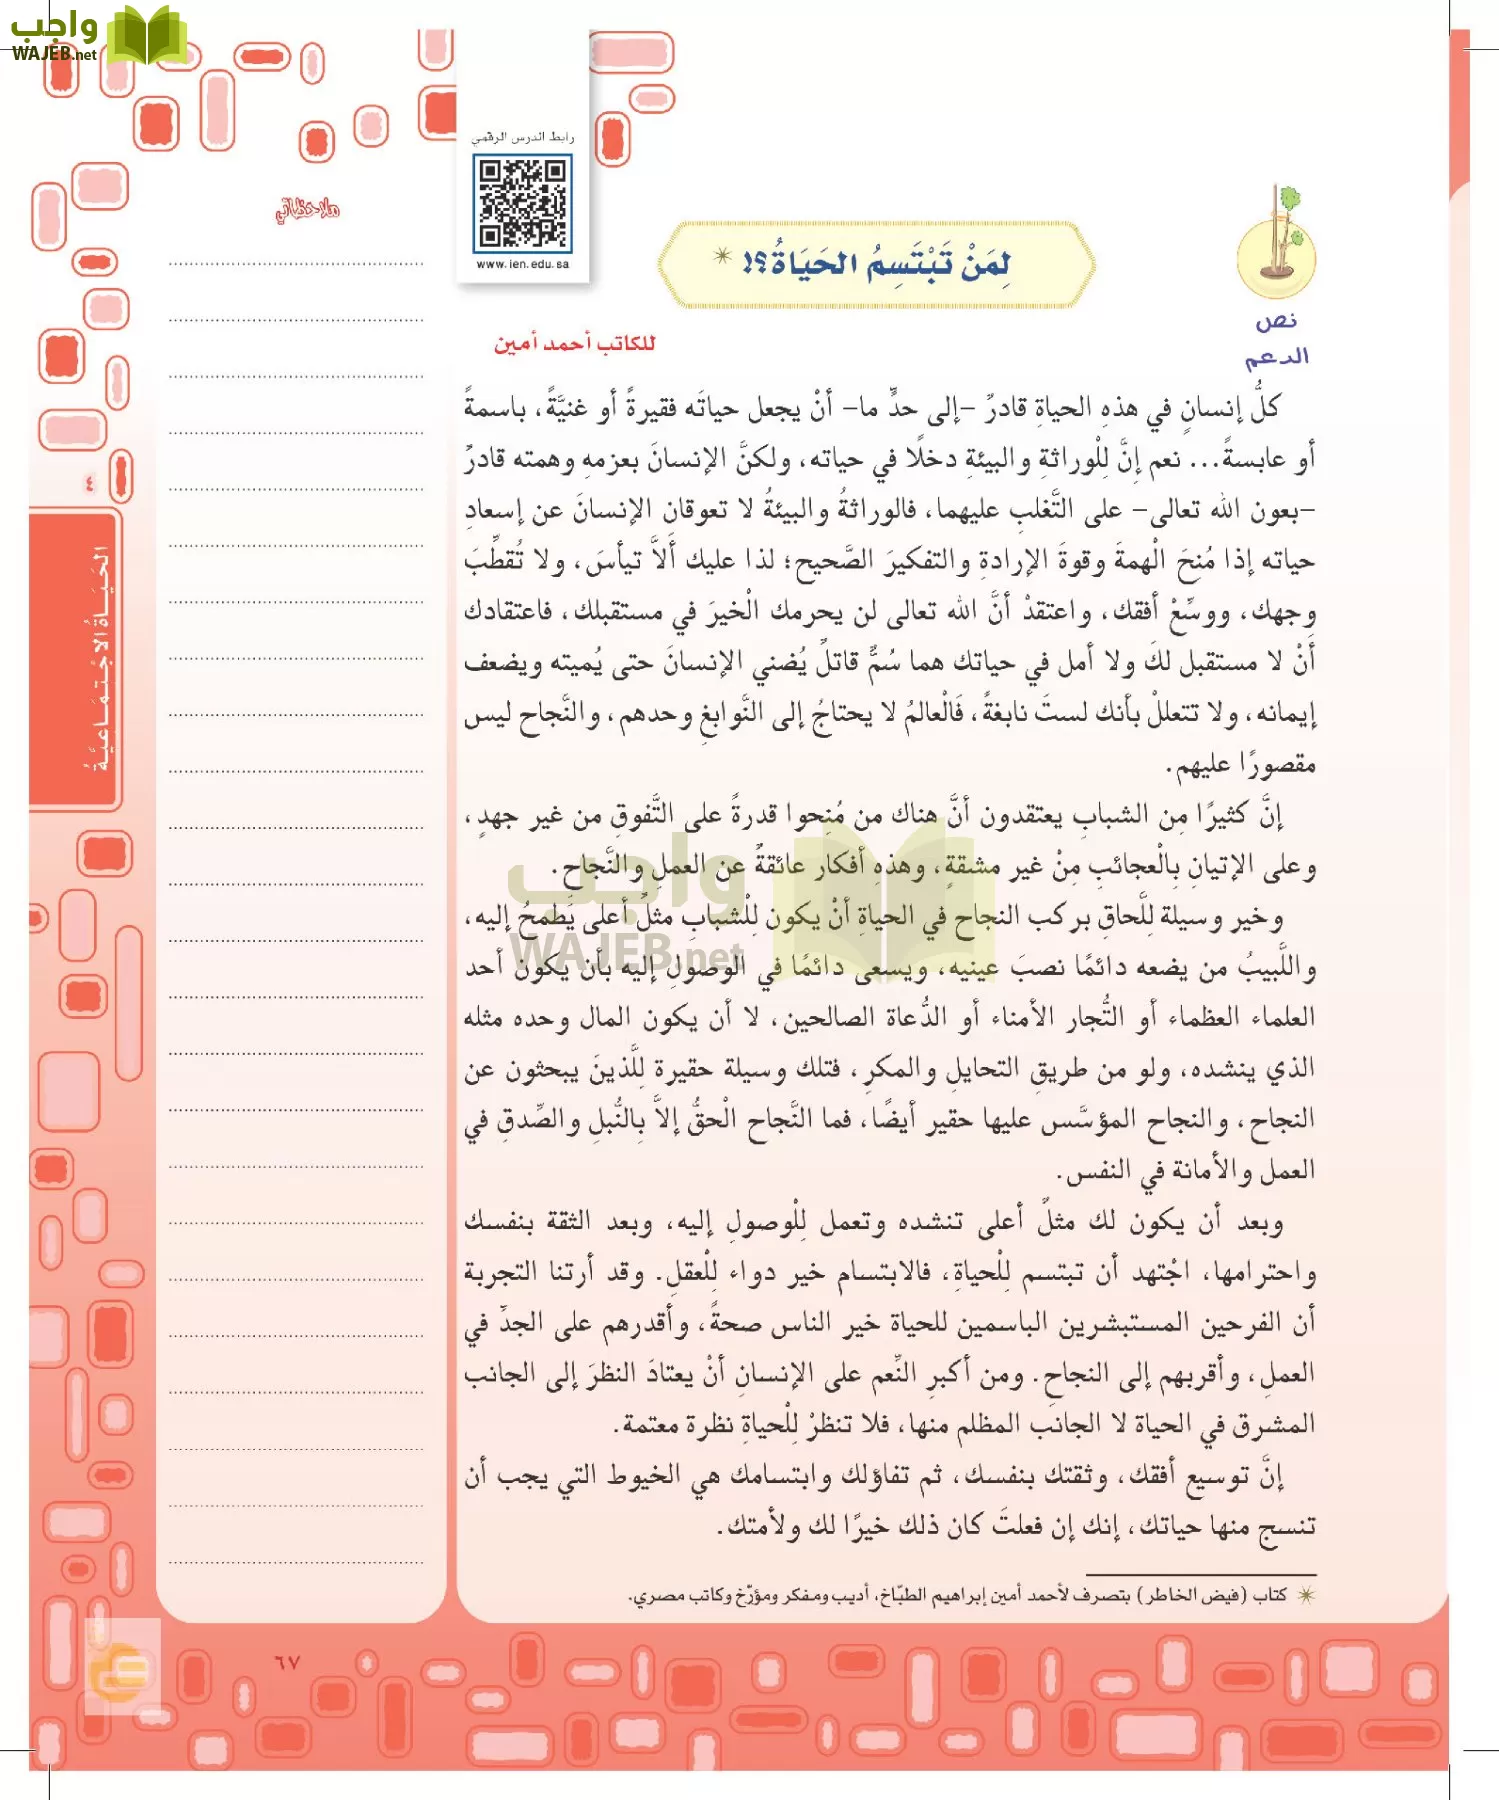 واجب
WAJEB.net
رابط الدرس الرقمي
www.ien.edu.sa
ملاحظاتي
نص
الدعم
لِمَنْ تَبْتَسِمُ الحَيَاةُ؟! *
للكاتب أحمد أمين
كلُّ إنسانٍ في هذهِ الحياةِ قادرٌ –إلى حدٍّ ما– أنْ يجعل حياتَه فقيرةً أو غنيَّةً، باسمةً
أو عابسةً... نعم إنَّ لِلْوراثةِ والبيئةِ دخلًا في حياته، ولكنَّ الإنسانَ بعزمهِ وهمته قادرٌ
–بعون الله تعالى– على التَّغلبِ عليهما، فالوراثةُ والبيئةُ لا تعوقانِ الإنسانَ عن إسعادِ
حياته إذا مُنحَ الْهمةَ وقوةَ الإرادةِ والتفكيرَ الصَّحيح؛ لذا عليك أَلاَّ تيأسَ، ولا تُقطِّبَ
وجهك، ووسِّعْ أفقك، واعتقدْ أنَّ الله تعالى لن يحرمك الْخيرَ في مستقبلك، فاعتقادك
أنْ لا مستقبل لكَ ولا أمل في حياتك هما سُمٌّ قاتلٌ يُضني الإنسانَ حتى يُميته ويضعف
إيمانه، ولا تتعللْ بأنك لستَ نابغةً، فَالْعالمُ لا يحتاجُ إلى النَّوابغِ وحدهم، والنَّجاح ليس
مقصورًا عليهم.
إنَّ كثيرًا مِن الشبابِ يعتقدون أنَّ هناك من مُنِحوا قدرةً على التَّفوقِ من غير جهدٍ،
وعلى الإتيانِ بِالْعجائبِ مِنْ غير مشقةٍ، وهذهِ أفكار عائقةٌ عن العملِ والنَّجاح.
وخير وسيلة لِلَّحاقِ بركب النجاح في الحياةِ أنْ يكون لِلْشبابِ مثلٌ أعلى يَطمحُ إليه،
واللَّبيبُ من يضعه دائمًا نصبَ عينيه، ويسعى دائمًا في الوصولِ إليه بأن يكون أحد
العلماء العظماء أو التُّجار الأمناء أو الدُّعاة الصالحين، لا أن يكون المال وحده مثله
الذي ينشده، ولو من طريقِ التحايلِ والمكرِ، فتلك وسيلة حقيرة لِلَّذينَ يبحثون عن
النجاح، والنجاح المؤسَّس عليها حقير أيضًا، فما النَّجاح الْحقُّ إلاَّ بِالنُّبلِ والصِّدقِ في
العمل والأمانة في النفس.
وبعد أن يكون لك مثلٌ أعلى تنشده وتعمل لِلْوصولِ إليه، وبعد الثقة بنفسك
واحترامها، اجْتهد أن تبتسم لِلْحياةِ، فالابتسام خير دواء لِلْعقلِ. وقد أرتنا التجربة
أن الفرحين المستبشرين الباسمين للحياة خير الناس صحةً، وأقدرهم على الجدِّ في
العملِ، وأقربهم إلى النجاحِ. ومن أكبرِ النِّعم على الإنسانِ أنْ يعتادَ النظرَ إلى الجانب
المشرق في الحياة لا الجانب المظلم منها، فلا تنظرْ لِلْحياةِ نظرة معتمة.
إنَّ توسيع أفقك، وثقتك بنفسك، ثم تفاؤلك وابتسامك هي الخيوط التي يجب أن
تنسج منها حياتك، إنك إن فعلتَ كان ذلك خيرًا لك ولأمتك.
* كتاب (فيض الخاطر) بتصرف لأحمد أمين إبراهيم الطبّاخ، أديب ومفكر ومؤرّخ وكاتب مصري.
واجب
WAJEB.net
٤
الحَيَاةُ الاجْتِمَاعِيَّةُ
٦٧